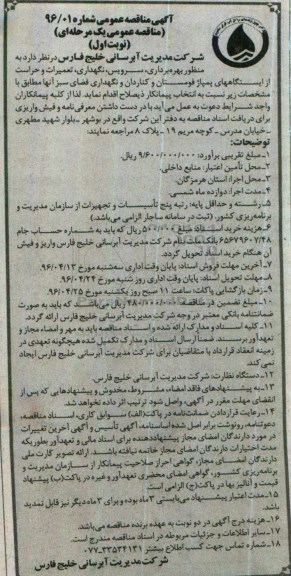 آگهی مناقصه عمومی شماره ۹۶/۰۱
(مناقصه عمومی یک مرحله‌ای)
(نوبت اول)
شرکت مدیریت آبرسانی خلیج فارس در نظر دارد به
منظور بهره‌برداری، سرویس، نگهداری، تعمیرات و حراست
از ایستگاههای پمپاژ فومستان و کناردان و نگهداری فضای سبز آنها مطابق با
مشخصات زیر نسبت به انتخاب پیمانکار ذیصلاح اقدام نماید. لذا از کلیه پیمانکاران
واجد شرایط دعوت به عمل می آید با در دست داشتن معرفی نامه و فیش واریزی
برای دریافت اسناد مناقصه به دفتر این شرکت واقع در بوشهر - بلوار شهید مطهری
- خیابان مدرس - کوچه مریم ۱۹ - پلاک ۸ مراجعه نمایند:
توضیحات:
۱- مبلغ تقریبی برآورد: ۹/۶۰۰/۰۰۰/۰۰۰ ریال.
۲- محل تأمین اعتبار: منابع داخلی.
۳- محل اجرا: استان هرمزگان.
۴- مدت اجرا: دوازده ماه شمسی.
۵- رشته و حداقل پایه: رتبه پنج تأسیسات و تجهیزات از سازمان مدیریت و
برنامه‌ریزی کشور. (ثبت در سامانه ساجار الزامی می‌باشد)
۶- هزینه خرید اسناد: مبلغ ۵۰۰/۰۰۰ ریال که باید به شماره حساب جام
۶۵۶۷۹۶۰۷/۴۸ بانک ملت بنام شرکت مدیریت آبرسانی خلیج فارس واریز و فیش
آن هنگام خرید اسناد تحویل گردد.
۷- آخرین مهلت فروش اسناد: پایان وقت اداری سه‌شنبه مورخ ۹۶/۰۴/۱۳
۸- مهلت تحویل اسناد: پایان وقت اداری روز شنبه مورخ ۹۶/۰۴/۲۴
۹- زمان بازگشایی پاکات: ساعت ۱۱ صبح روز یکشنبه مورخ ۹۶/۰۴/۲۵
۱۰- مبلغ تضمین در مناقصه: ۴۸۰/۰۰۰/۰۰۰ ریال می‌باشد که باید به صورت
ضمانتنامه بانکی معتبر در وجه شرکت مدیریت آبرسانی خلیج فارس ارائه گردد.
۱۱- کلیه اسناد و مدارک ارائه شده و اسناد مناقصه باید به مهر و امضاء مجاز و
تعهدآور برسند. ضمناً ارسال اسناد و مدارک تکمیل شده هیچگونه تعهدی در
زمینه انعقاد قرارداد با متقاضیان برای شرکت مدیریت آبرسانی خلیج فارس ایجاد
نمی‌کند.
۱۲- دستگاه نظارت: شرکت مدیریت آبرسانی خلیج فارس.
۱۳- به پیشنهادهای فاقد امضاء، مشروط، مخدوش و پیشنهادهایی که پس از
انقضای مهلت مقرر در آگهی، واصل شود، ترتیب اثر داده نخواهد شد.
۱۴- رعایت قراردادن ضمانت‌نامه در پاکت (الف) سوابق کاری، اسناد مناقصه،
دعوتنامه، رونوشت برابر اصل شده اساسنامه، آگهی تأسیس و آگهی آخرین تغییرات
در مورد دارندگان امضای مجاز پیشنهاددهنده برای اسناد مالی و تعهدآور بطوریکه
مدت اختیارات دارندگان امضای مجاز خاتمه نیافته باشد. ارائه تصویر کارت ملی
دارندگان امضای مجاز، گواهی احراز صلاحیت پیمانکار از سازمان مدیریت و
برنامه‌ریزی کشور، گواهی امضای محضری تعهدآور و غیره در پاکت (ب) پیشنهاد
قیمت و آنالیز بها در پاکت (ج) الزامی است.
۱۵- مدت اعتبار پیشنهاد می‌بایستی ۳ ماه بوده و برای ۳ ماه دیگر نیز قابل تمدید
باشد.
۱۶- هزینه درج آگهی در دو نوبت به عهده برنده مناقصه می‌باشد
۱۷- سایر اطلاعات و جزئیات مربوطه در اسناد مناقصه مندرج است.
۱۸- شماره تماس جهت کسب اطلاع بیشتر ۳۳۵۳۴۱۳۱-۰۷۷
شرکت مدیریت آبرسانی خلیج فارس